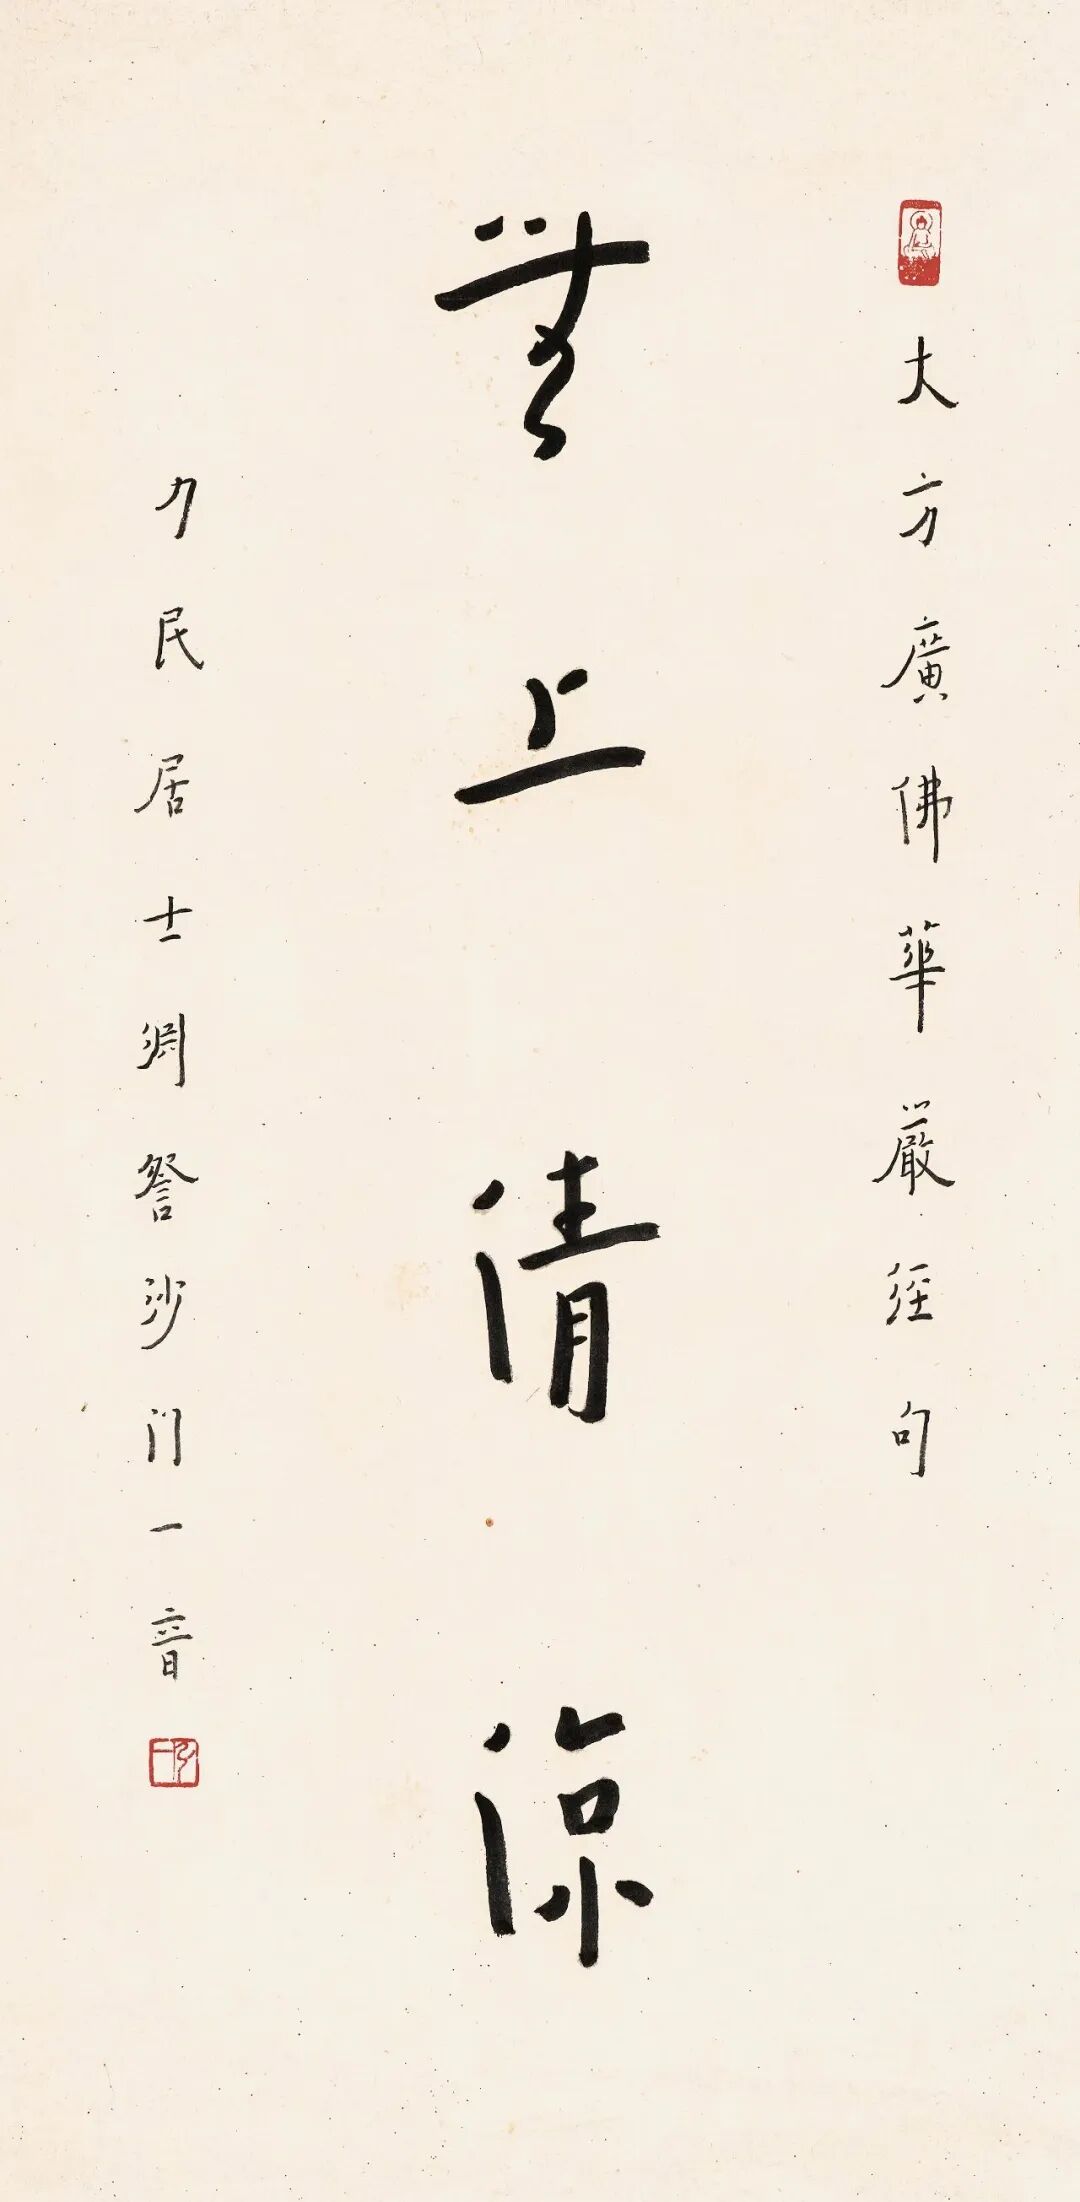 大方廣佛華嚴經句
無上清涼
力民居士淵詧沙門一音